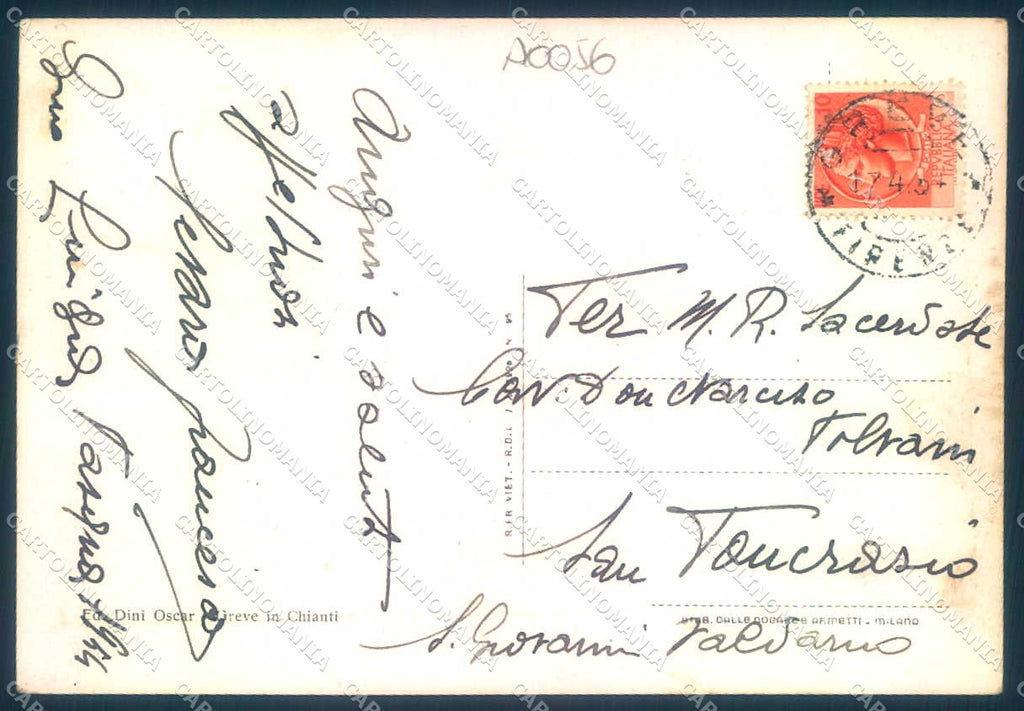 A0056
Auguri e saluti
affettuosi
Francesco
Luigina
REPVBBLICA
ITALIANA
FIRENZE
Per M. R. Sacerdote
Cav. Don Narciso
Polvani
San Pancrazio
S. Giovanni Valdarno
Ed. Dini Oscar Greve in Chianti
R. FR VIET. - R.D.L.
STAB. DALLE NOGARE E ARMETTI - MILANO
CARTOLINOMANIA